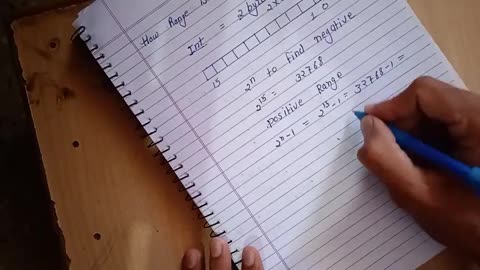 How Range
Int = 2 byte
2 x
15 1 0
2ⁿ to find negative
2¹⁵ = 32768
positive Range
2ⁿ-1 = 2¹⁵-1 = 32768-1 =